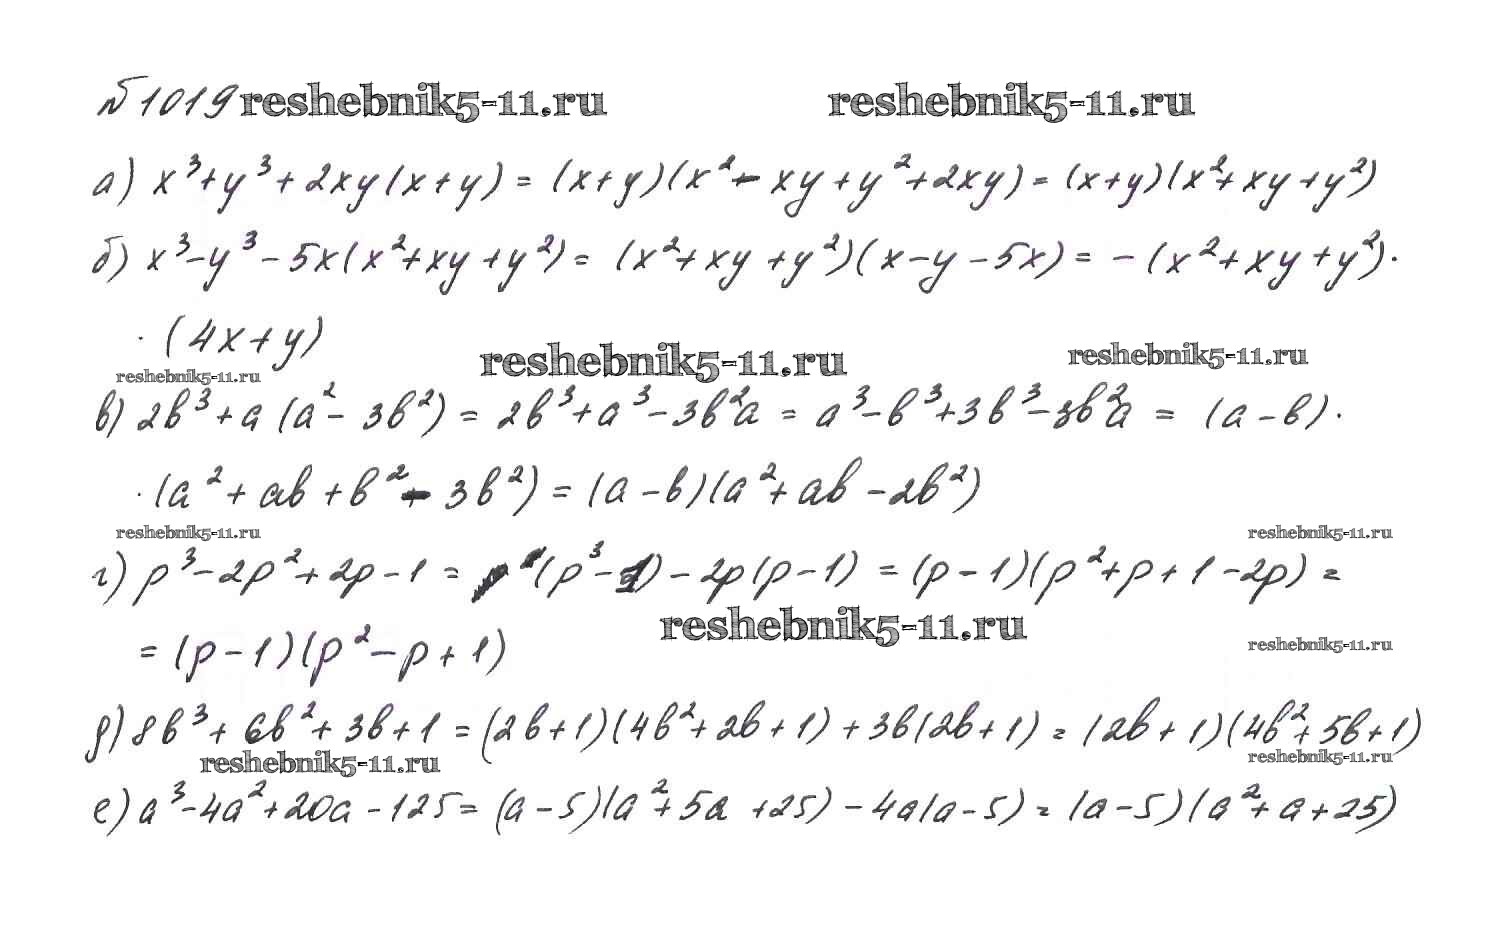 №1019 reshebnik5-11.ru reshebnik5-11.ru
а) x³+y³+2xy(x+y) = (x+y)(x²-xy+y²+2xy) = (x+y)(x²+xy+y²)
б) x³-y³-5x(x²+xy+y²) = (x²+xy+y²)(x-y-5x) = -(x²+xy+y²)·
·(4x+y)
reshebnik5-11.ru reshebnik5-11.ru reshebnik5-11.ru
в) 2b³+a(a²-3b²) = 2b³+a³-3b²a = a³-b³+3b³-3b²a = (a-b)·
·(a²+ab+b²-3b²) = (a-b)(a²+ab-2b²)
reshebnik5-11.ru reshebnik5-11.ru
г) p³-2p²+2p-1 = (p³-1)-2p(p-1) = (p-1)(p²+p+1-2p) =
reshebnik5-11.ru
= (p-1)(p²-p+1)
reshebnik5-11.ru
д) 8b³+6b²+3b+1 = (2b+1)(4b²+2b+1)+3b(2b+1) = (2b+1)(4b²+5b+1)
reshebnik5-11.ru reshebnik5-11.ru
е) a³-4a²+20a-125 = (a-5)(a²+5a+25)-4a(a-5) = (a-5)(a²+a+25)